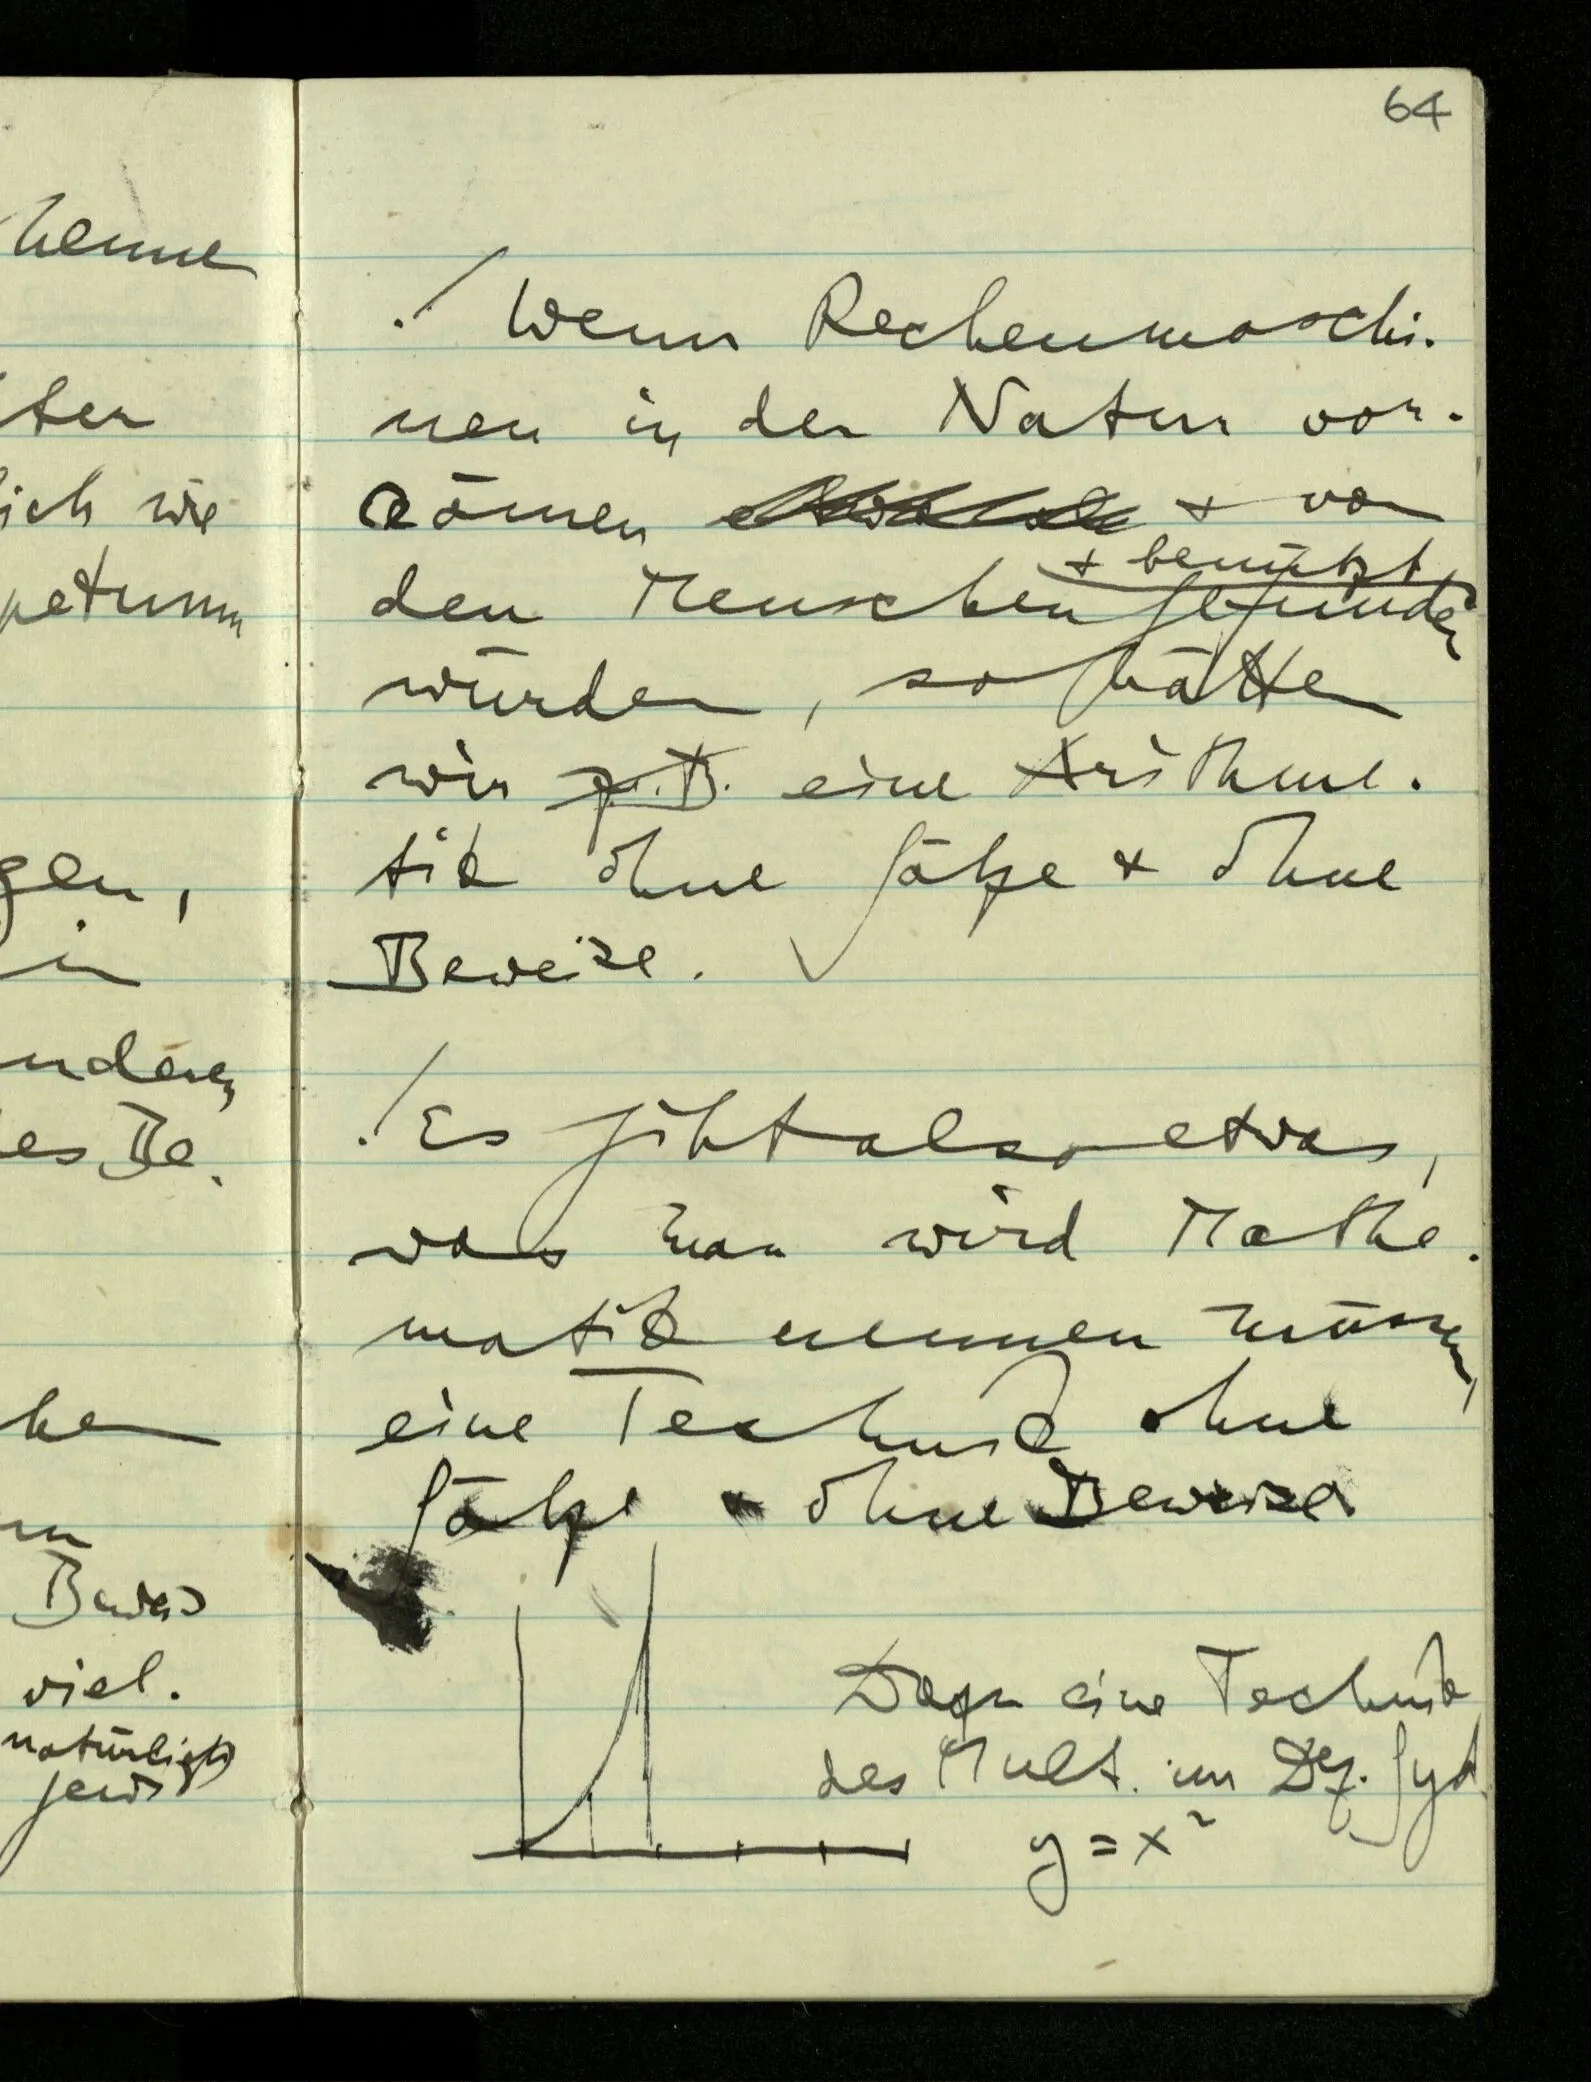 64
henne
ter
lich wie
petuum
gen,
in
nderen
es Be.
hen
Beweis
viel.
natürlich
jeder
./ Wenn Rechenmaschi-
nen in der Natur vor-
kämen + von
+ benützt
den Menschen gefunden
würden, so hätten
wir z.B. eine Arithme-
tik ohne Sätze + ohne
Beweise. ✓
./ Es gibt also etwas,
was man wird Mathe-
matik nennen müssen,
eine Technik ohne
Sätze + ohne Beweise.
Dazu eine Technik
des Mult. im Dez. Syst.
y = x²